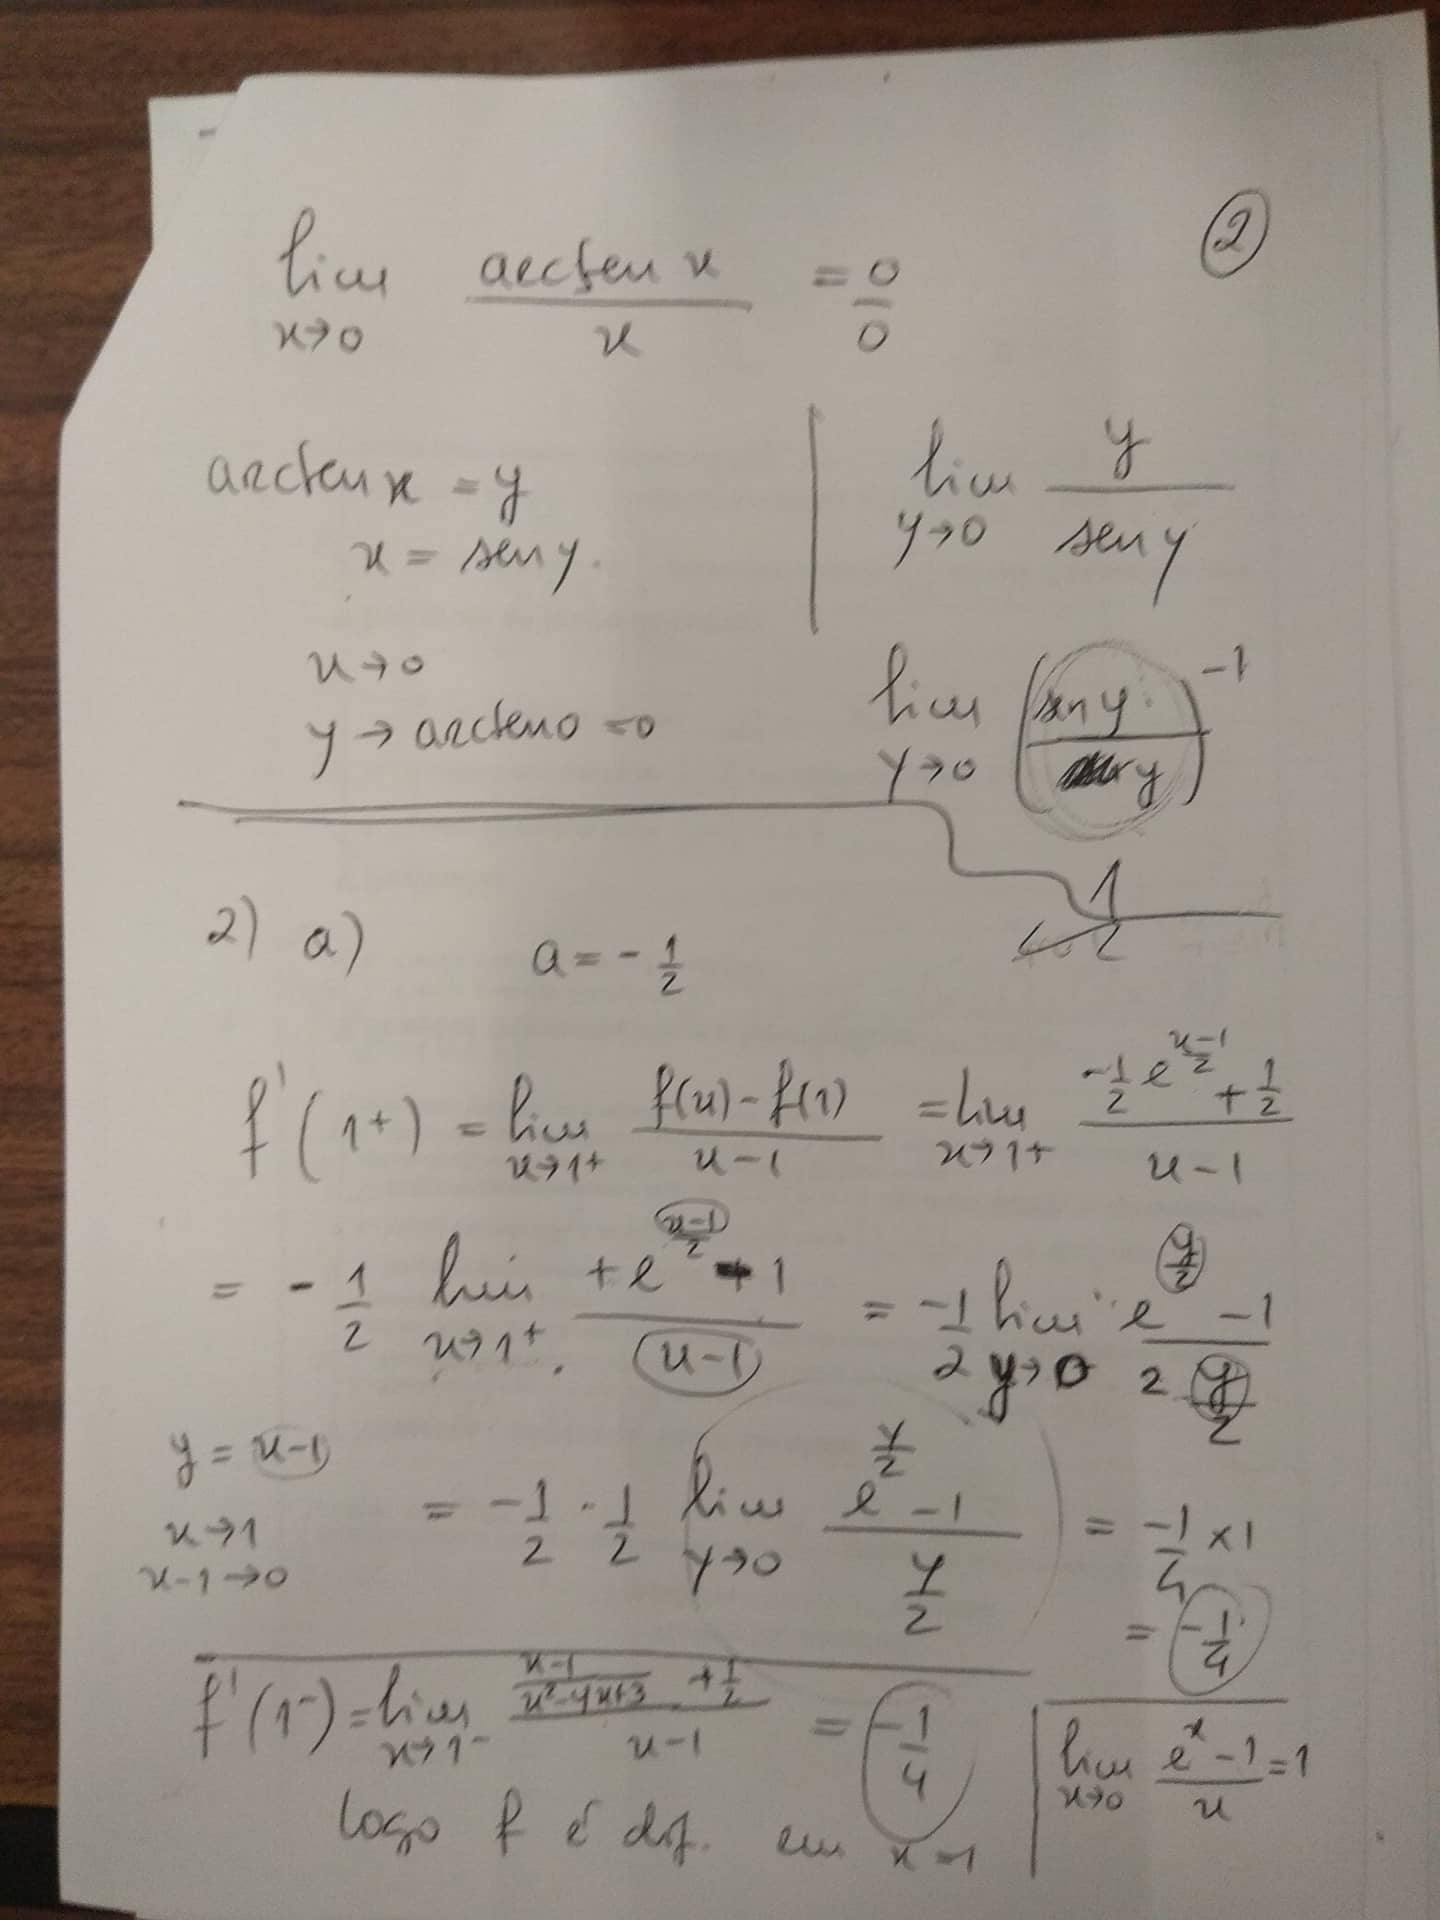 ②
lim x→0 arcsen x / x = 0/0
arcsen x = y
x = sen y.
x→0
y → arcsen 0 = 0
lim y→0 y / sen y
lim y→0 (sen y / y)^-1
1
2) a) a = - 1/2
f'(1+) = lim x→1+ f(x) - f(1) / x-1 = lim x→1+ -1/2 e^(x-1)/2 + 1/2 / x-1
= - 1/2 lim x→1+ +e^(x-1)/2 - 1 / x-1 = -1/2 lim y→0 e^y/2 - 1 / 2 y/2
y = x-1
x→1
x-1→0
= -1/2 · 1/2 lim y→0 e^y/2 - 1 / y/2 = -1/4 × 1
= -1/4
f'(1-) = lim x→1- x-1 / x²-4x+3 + 1/2 / x-1 = -1/4
lim x→0 e^x - 1 / x = 1
logo f é dif. em x=1